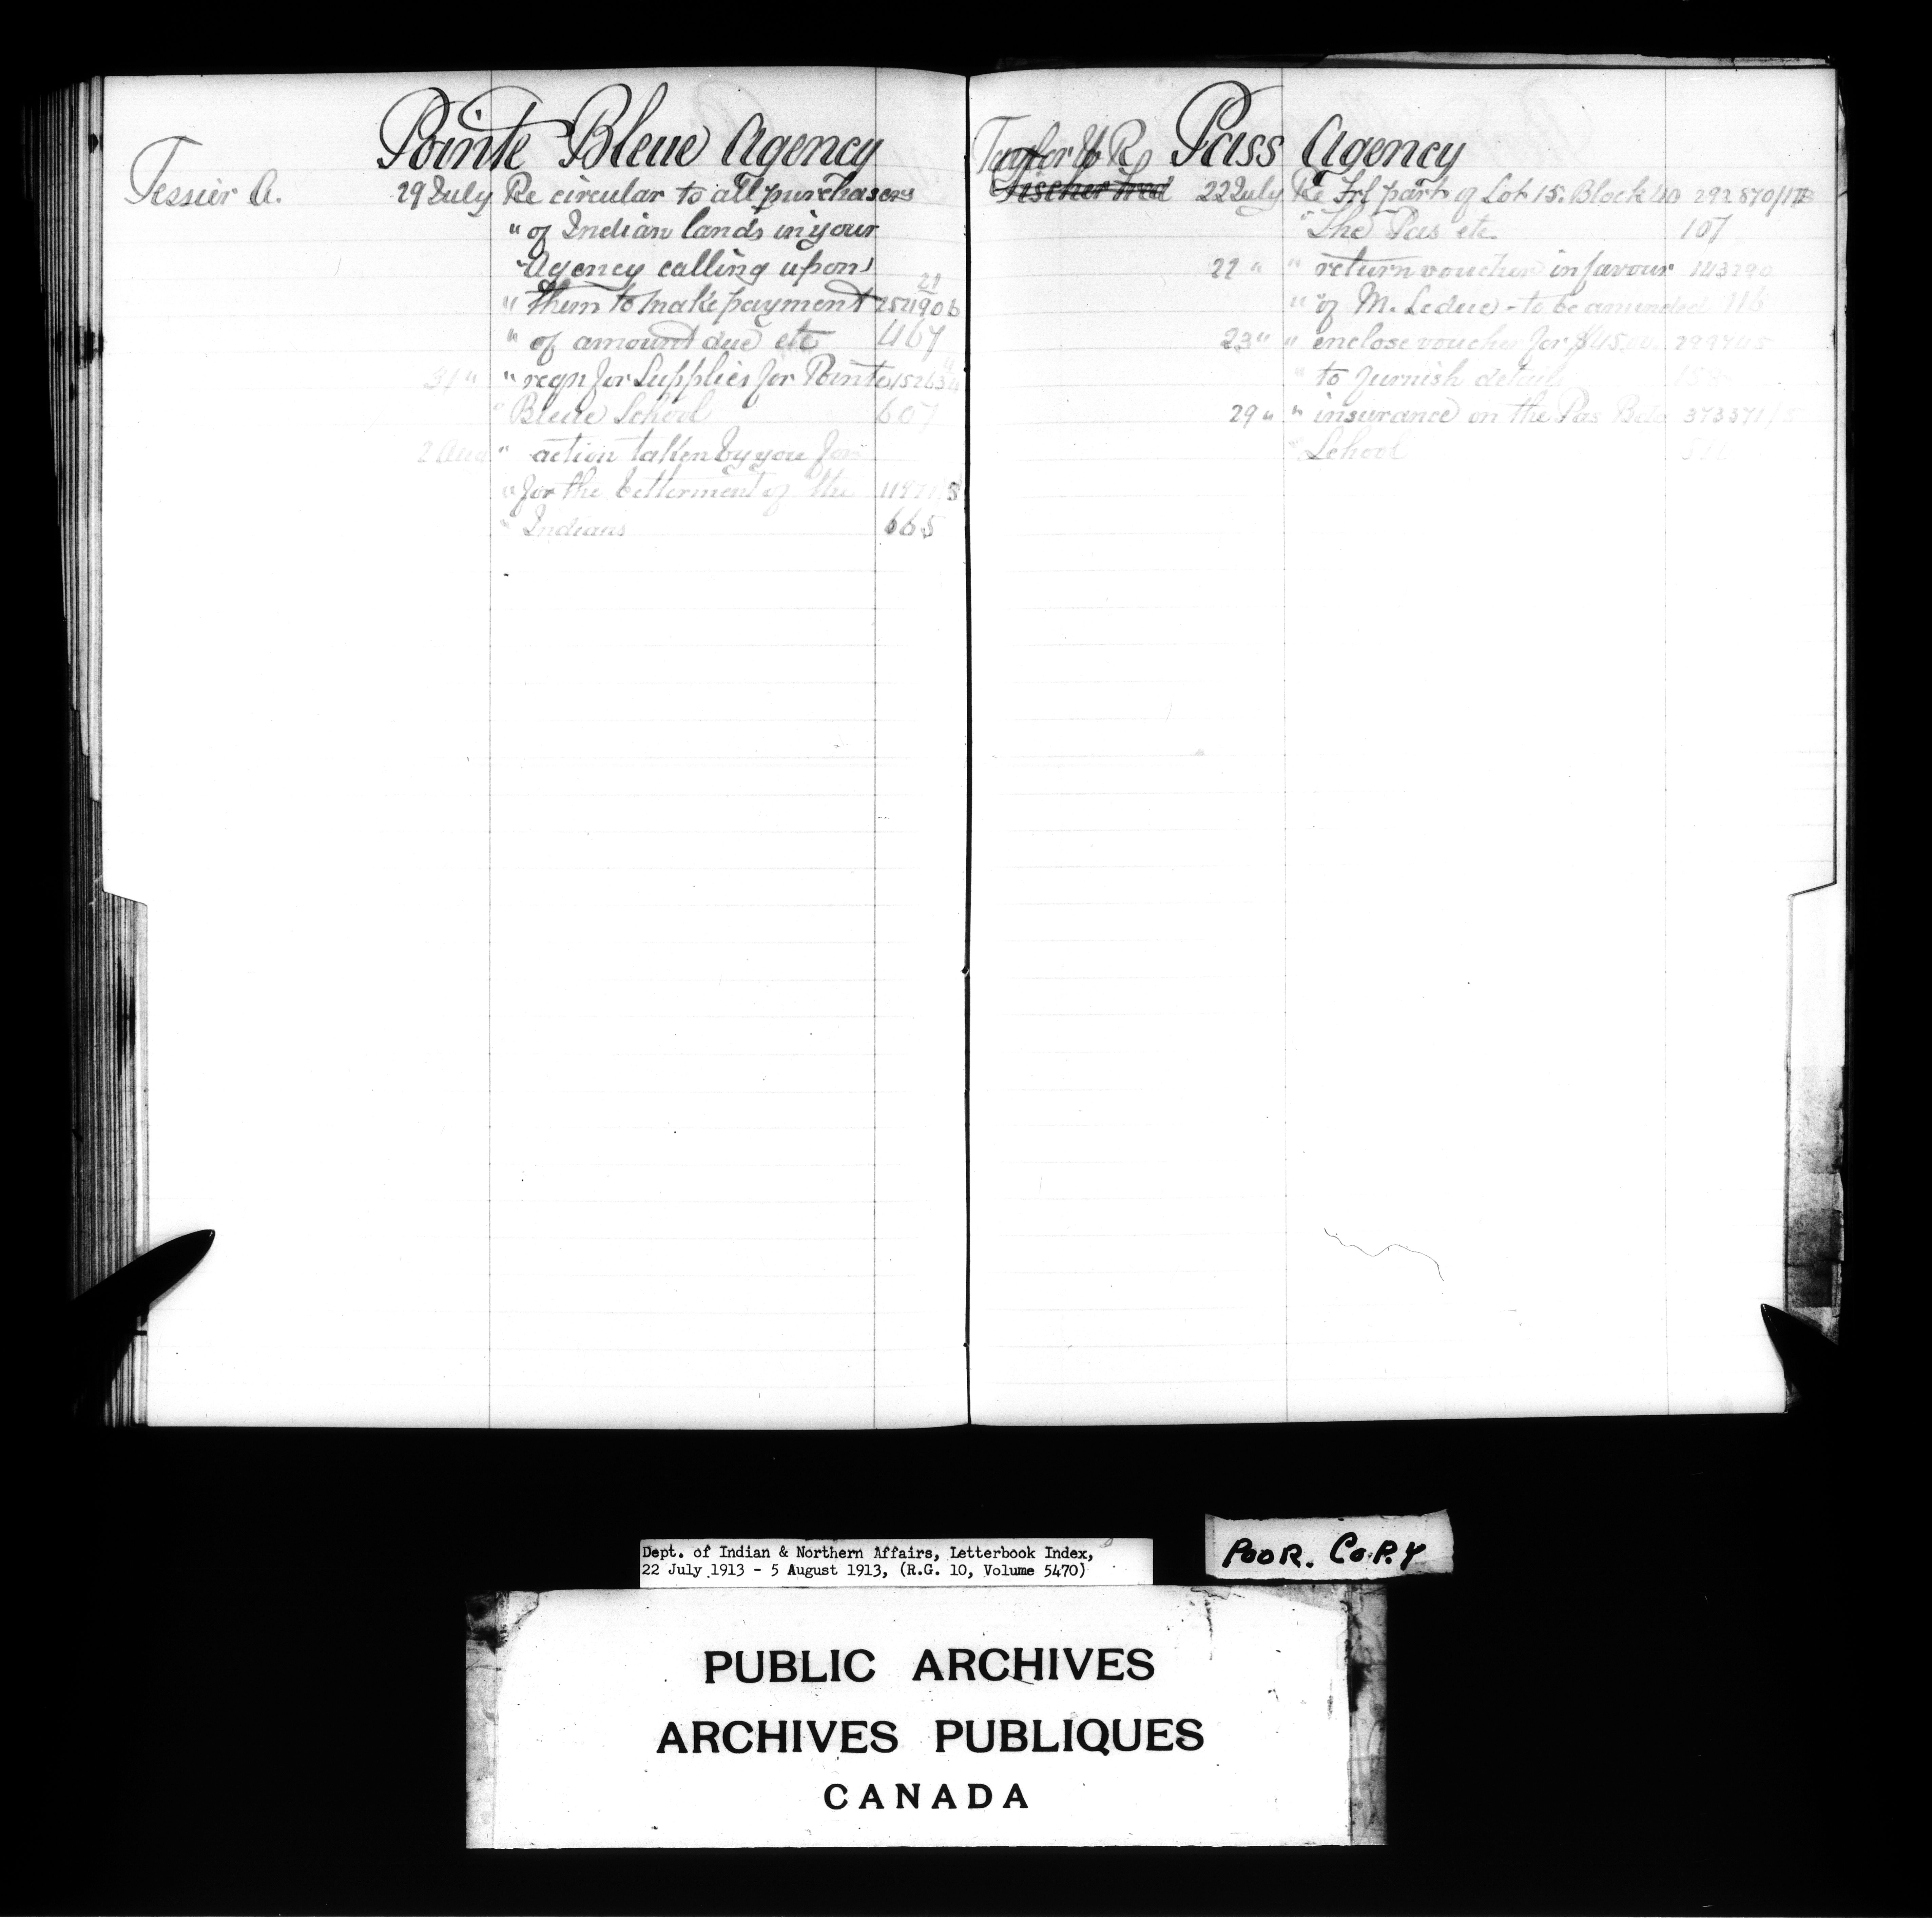 Pointe Bleue Agency
Tessier A. 29 July Re circular to all purchasers
" of Indian lands in your
" Agency calling upon
22
" them to make payment 254190 b
" of amount due etc 467
31 " " reqn for Supplies for Pointe
" Bleue School 607
2 Aug " action taken by you for
" for the betterment of the
" Indians 665
Pass Agency
Taylor R
Fischer Fred 22 July Re Frl part of Lot 15. Block 40 292870/
" The Pas etc 107
22 " " return voucher in favour 143290
" of M. Leduc - to be amended 116
23 " " enclose voucher for $45.00
" to furnish details
29 " " insurance on the Pas 373371/
" School
Dept. of Indian & Northern Affairs, Letterbook Index,
22 July 1913 - 5 August 1913, (R.G. 10, Volume 5470)
POOR. COPY
PUBLIC ARCHIVES
ARCHIVES PUBLIQUES
CANADA